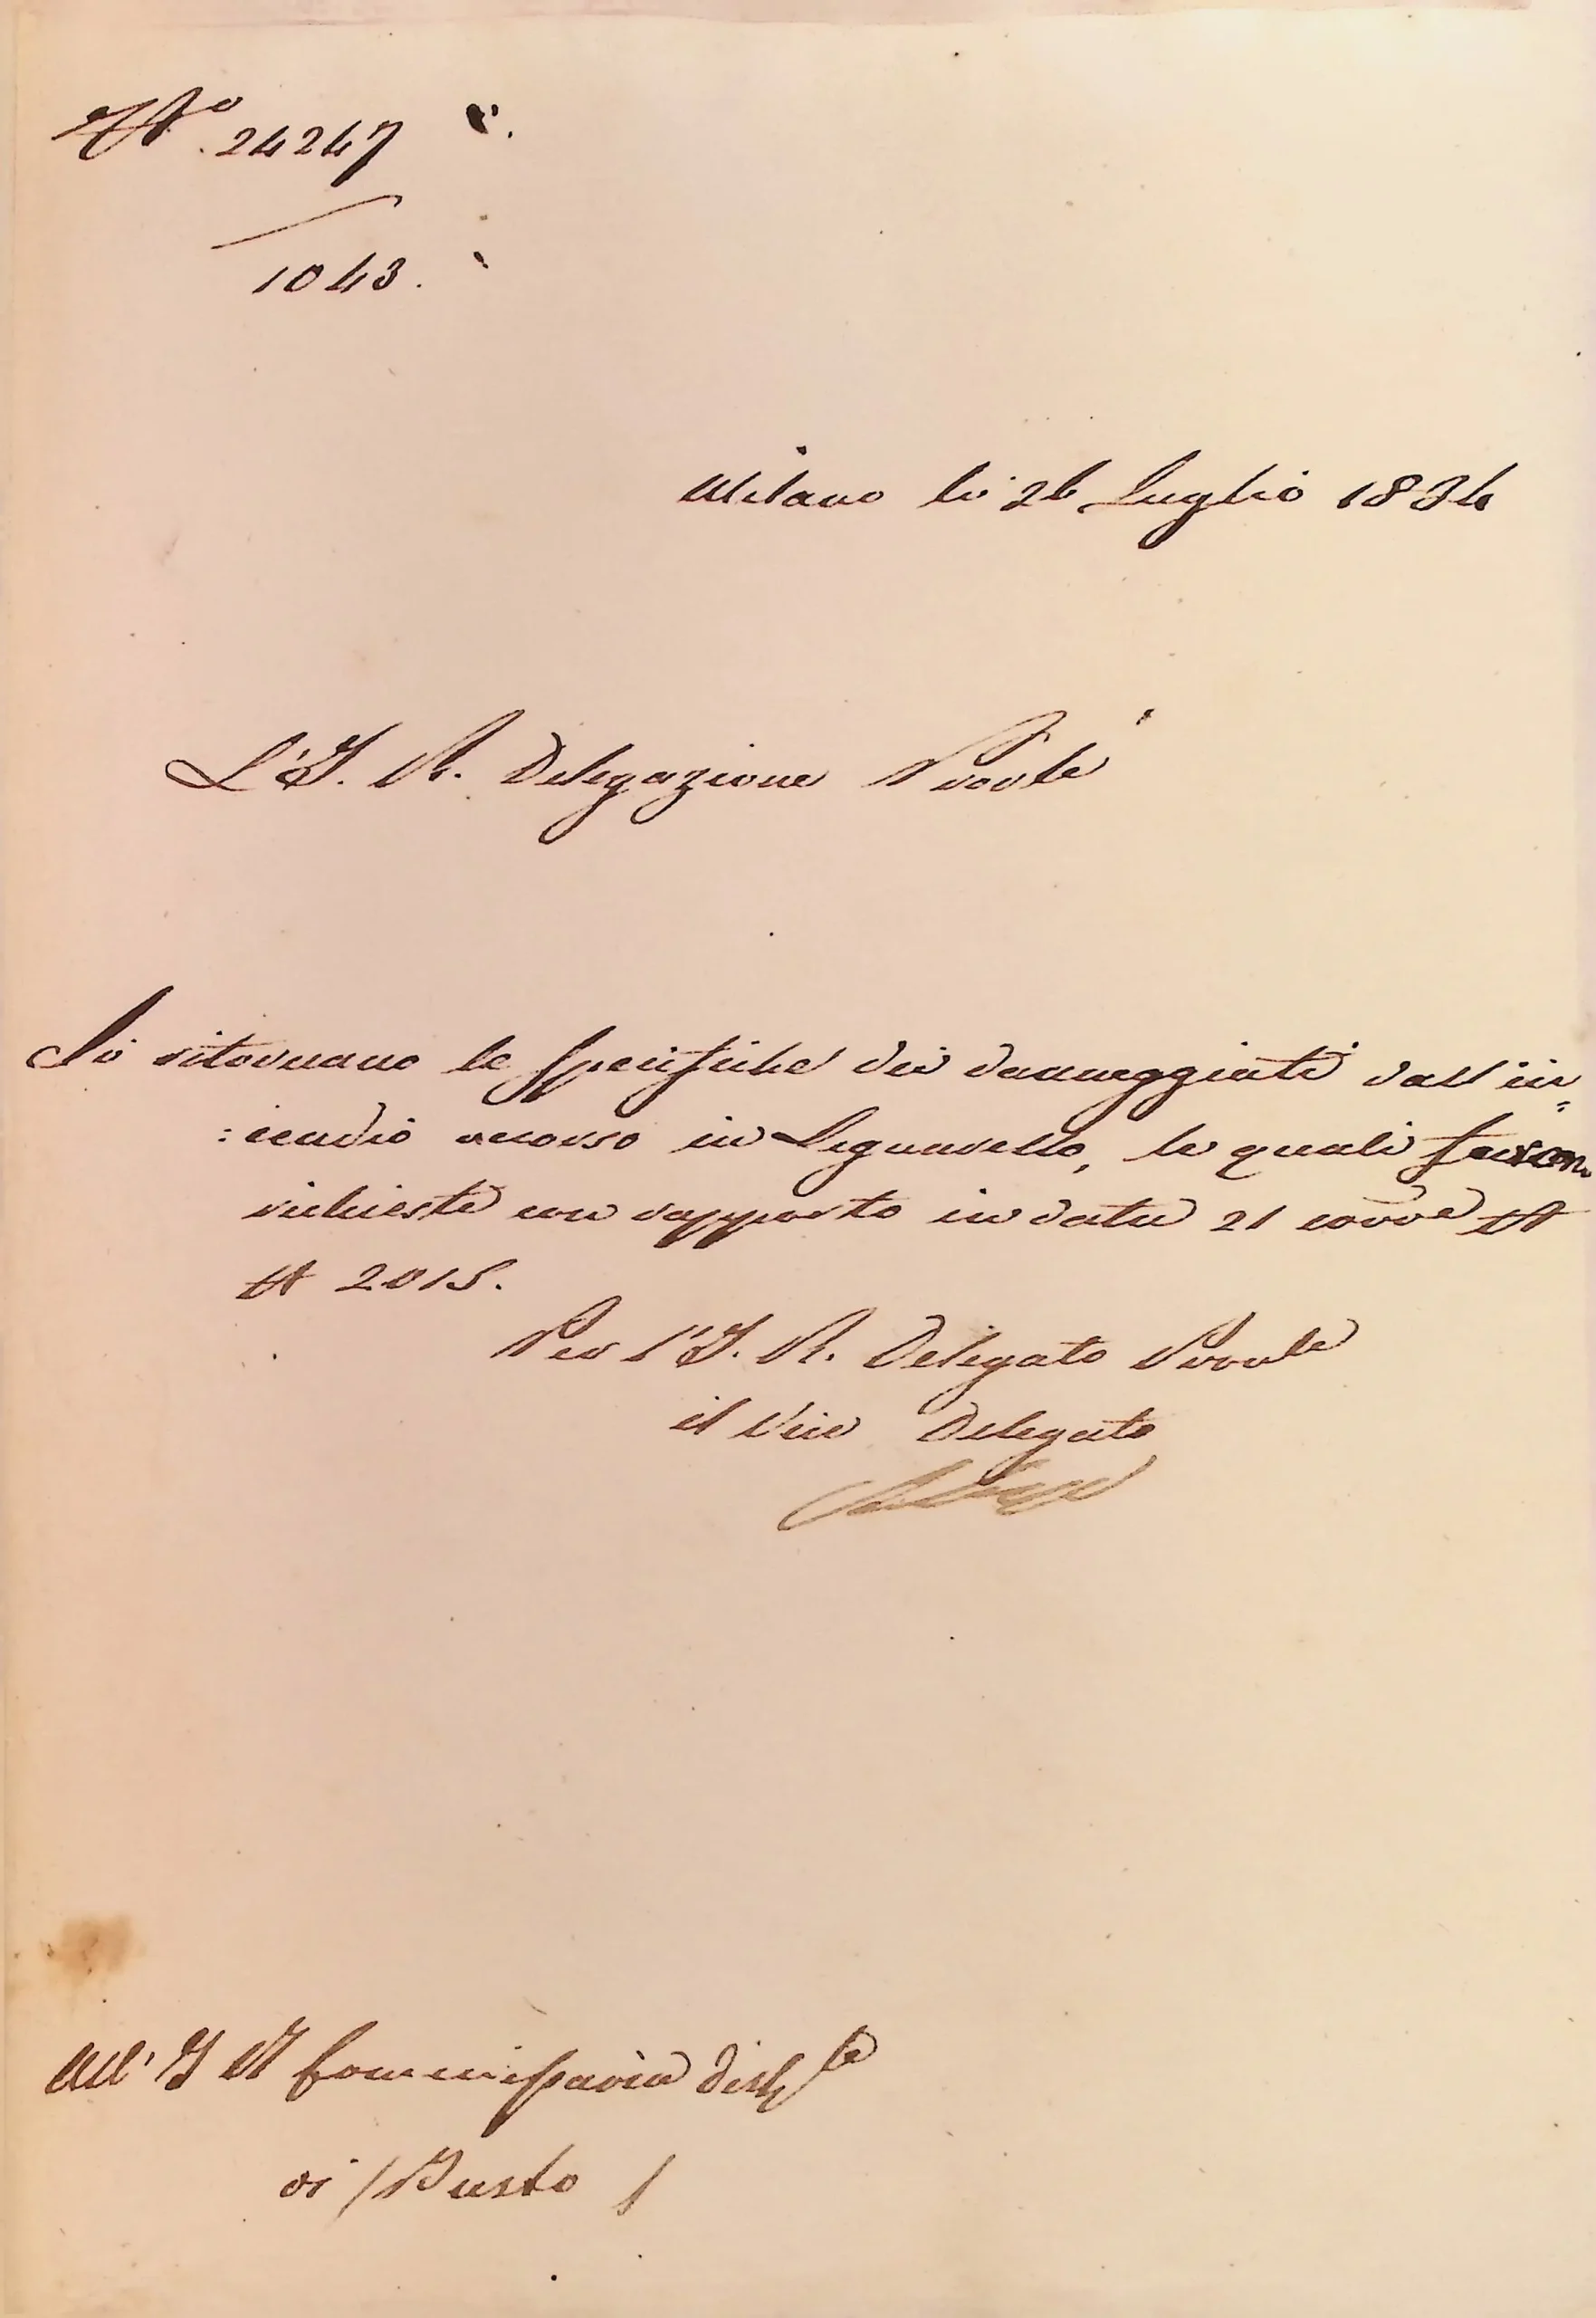 N.o 24247
1043.
Milano li 26 Luglio 1834
L'I. R. Delegazione Provle
Si ritornano le specifiche dei danneggiati dall'in=
:cendio occorso in Legnarello, le quali furon
richieste con rapporto in data 21 corre N
N 2015.
Per l'I. R. Delegato Provle
il Vice Delegato
All' I R Commissaria Distle
di Busto